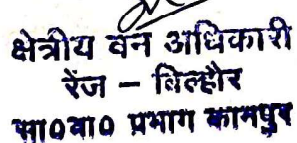 क्षेत्रीय वन अधिकारी
रेंज - बिल्हौर
सा०वा० प्रभाग कानपुर